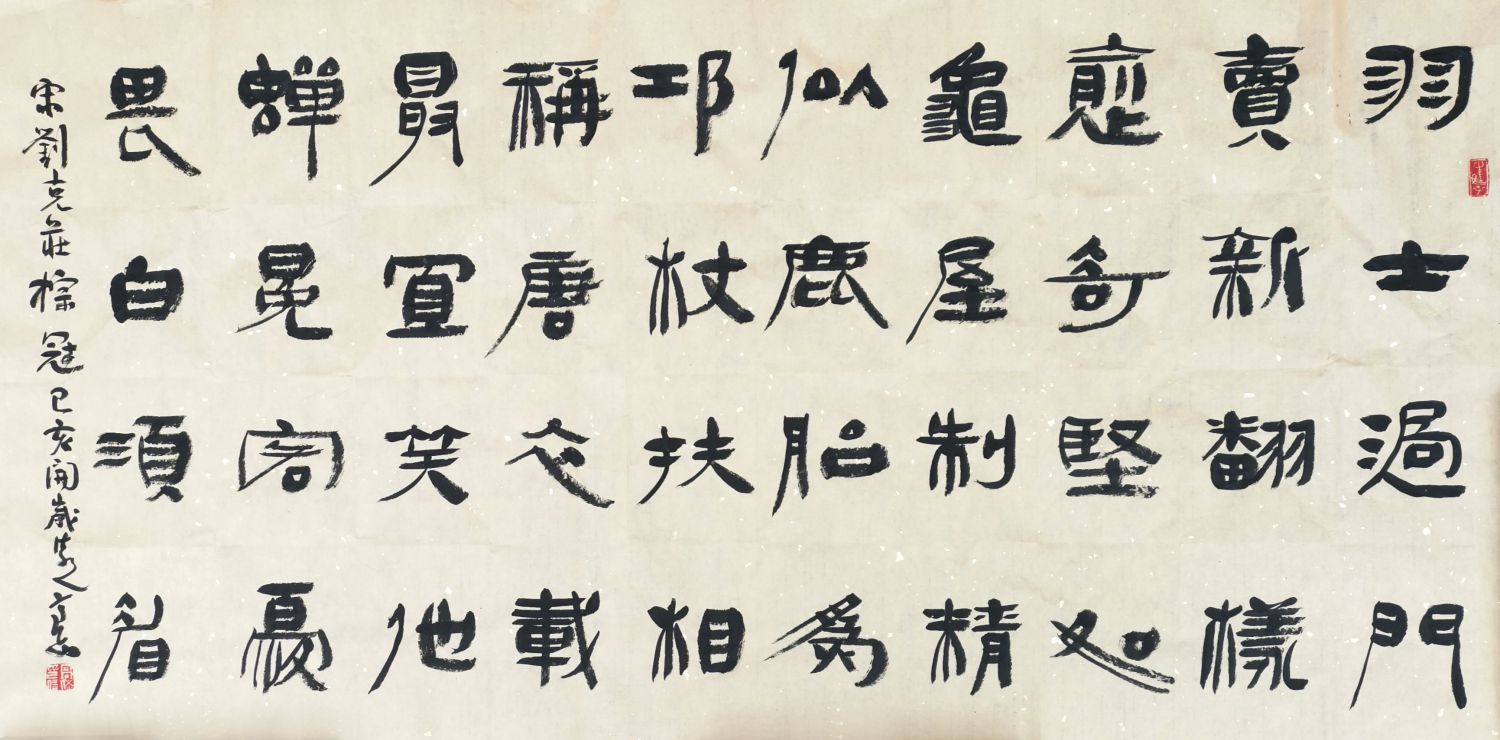 羽士過門
賣新翻樣
愈奇堅如
龜屋制精
似鹿胎爲
邛杖扶相
稱唐衣載
最宜笑他
蟬冕客憂
畏白須眉
宋劉克莊棕冠己亥開歲